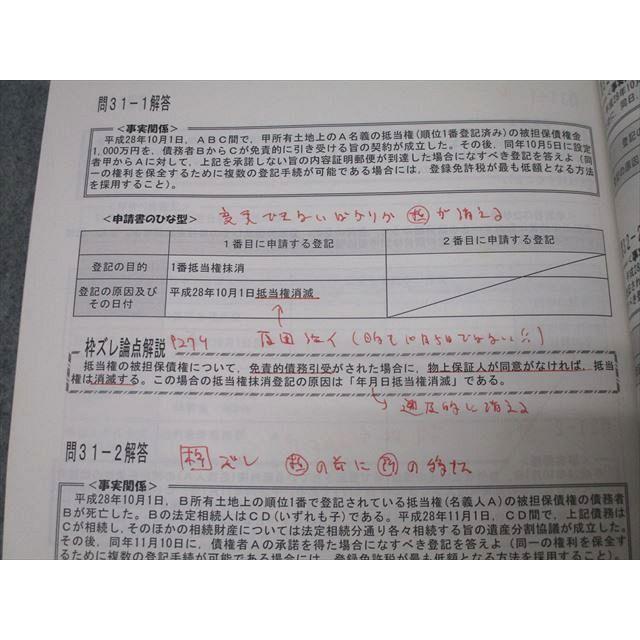 問31-1解答
<事実関係>
平成28年10月1日，ABC間で，甲所有土地上のA名義の抵当権（順位1番登記済み）の被担保債権金
1,000万円を，債務者BからCが免責的に引き受ける旨の契約が成立した。その後，同年10月5日に設定
者甲からAに対して，上記を承諾しない旨の内容証明郵便が到達した場合になすべき登記を答えよ（同
一の権利を保全するために複数の登記手続が可能である場合には，登録免許税が最も低額となる方法
を採用すること）。
<申請書のひな型>
が消える
1番目に申請する登記 2番目に申請する登記
登記の目的 1番抵当権抹消
登記の原因及び
その日付 平成28年10月1日抵当権消滅
枠ズレ論点解説 P274 原因注イ
抵当権の被担保債権について，免責的債務引受がされた場合に，物上保証人が同意がなければ，抵当
権は消滅する。この場合の抵当権抹消登記の原因は「年月日抵当権消滅」である。
遡及的に消える
問31-2解答 枠ズレ
<事実関係>
平成28年10月1日，B所有土地上の順位1番で登記されている抵当権（名義人A）の被担保債権の債務者
Bが死亡した。Bの法定相続人はCD（いずれも子）である。平成28年11月1日，CD間で，上記債務は
Cが相続し，そのほかの相続財産については法定相続分通り各々相続する旨の遺産分割協議が成立した。
その後，同年11月10日に，債権者Aの承諾を得た場合になすべき登記を答えよ（同一の権利を保全す
るために複数の登記手続が可能である場合には，登録免許税が最も低額となる方法を採用すること）。